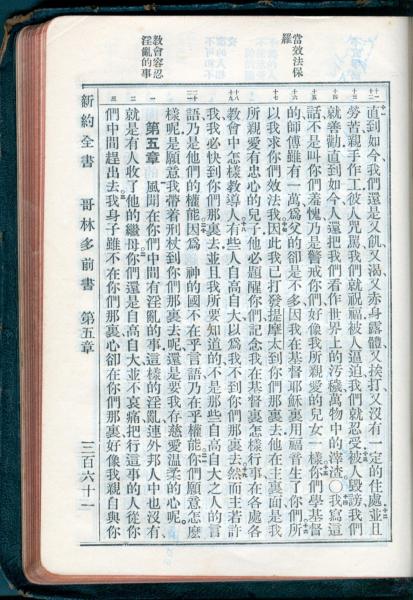 當效法保
羅
教會容忍
淫亂的事
直到如今、我們還是又飢、又渴、又赤身露體、又挨打、又沒有一定的住處、並且
勞苦、親手作工、彼人咒罵、我們就祝福、被人逼迫、我們就忍受、被人毀謗、我們
就善勸、直到如今、人還把我們看作世界上的汚穢、萬物中的滓渣。〇我寫這
話、不是叫你們羞愧、乃是警戒你們、好像我所親愛的兒女一樣、你們學基督
的師傅雖有一萬、爲父的卻是不多、因我在基督耶穌裏用福音生了你們、所
以我求你們效法我、因此我已打發提摩太到你們那裏去、他在主裏面是我
所親愛有忠心的兒子、他必題醒你們、記念我在基督裏怎樣行事、在各處各
教會中怎樣教導人、有些人自高自大、以爲我不到你們那裏去、然而主若許
我、我必快到你們那裏去、並且我所要知道的、不是那些自高自大之人的言
語、乃是他們的權能、因爲 神的國不在乎言語、乃在乎權能、你們願意怎麽
樣呢、是願意我帶着刑杖到你們那裏去呢、還是要我存慈愛溫柔的心呢。
第五章 風聞在你們中間有淫亂的事、這樣的淫亂、連外邦人中也沒有、
就是有人收了他的繼母、你們還是自高自大、並不哀痛、把行這事的人從你
們中間趕出去、我身子雖不在你們那裏、心卻在你們那裏、好像我親自與你
新約全書 哥林多前書 第五章 三百六十一